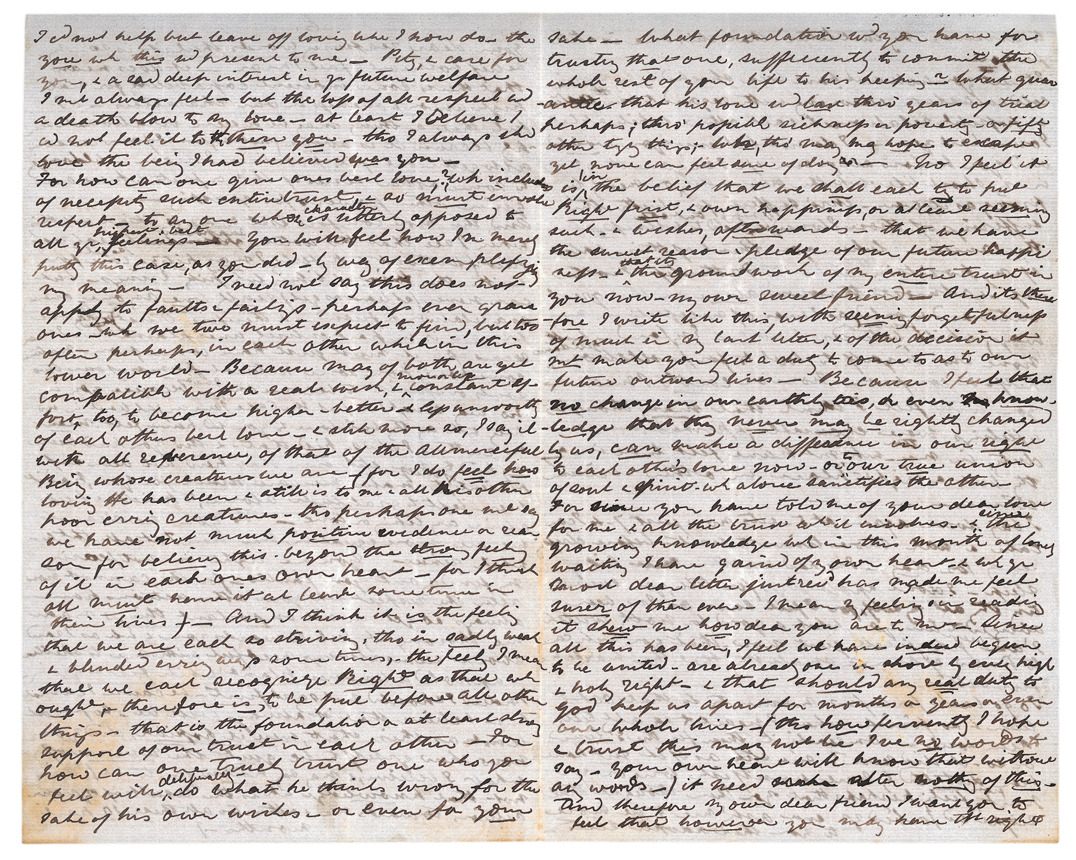 I cd not help but leave off loving whe I now do – the
you wh this wd present to me – Pity, & care for
you, & a sad deep interest in yr future welfare
I mt always feel – but the loss of all respect wd
a death blow to my love – at least I believe I
cd not feel it to them you – tho I always she
love the being I had believed was you –
For how can one give ones best love, wh includes
of necessity such entire trust – & so must involve
respect – to any one whose character is utterly opposed to
all yr highest, best feelings – You will feel how I'm merely
putting this case, as you did – by way of exemplifying
my meaning – I need not say this does not
apply to faults & failings – perhaps even grave
ones – wh we two must expect to find, but too
often perhaps, in each other while in this
lower world – Because many of both are yet
compatible with a real wish, & constant ef-
fort, too, to become higher – better – & less unworthy
of each others best love – & still more so, I say it
with all reverence, of that of the All merciful
Being whose creatures we are (for I do feel how
loving He has been & still is to me & all His other
poor erring creatures – tho perhaps one may say
we have not much positive evidence or rea-
son for believing this – beyond the strong feeling
of it in each ones own heart – for I think
all must have it at least some time in
their lives) – And I think it is the feeling
that we are each so striving, tho in sadly weak
& blinded erring ways sometimes, – the feeling I mean
that we each recognize Right as that wh
ought, & therefore is, to be put before all other
things – that is the foundation or at least strong
support of our trust in each other – For
how can one truly trust one who you
feel will, deliberately do what he thinks wrong for the
sake of his own wishes – or even for your
sake – What foundation wd you have for
trusting that one, sufficiently to commit the
whole rest of your life to his keeping? What guar-
antee that his love wd last thro years of trial
perhaps; thro' possible sickness or poverty – a fifty
other trying things; who, tho' many may hope to escape
yet none can feel sure of doing so – No I feel it
is in the belief that we shall each try to put
Right first, & own happiness, or at least seeming
such – & wishes, afterwards – that we have
the surest reason & pledge of our future happi
ness – & that is the groundwork of my entire trust in
you now – my own sweet friend – And its there-
fore I write like this, with seeming forgetfulness
of much in my last letter, & of the decision it
mt make you feel a duty to come to as to our
future outward lives – Because I feel that
no change in our earthly ties, or even know-
ledge that they never may be rightly changed
by us, can make a difference in our right
to each other's love now – or to our true union
of soul & spirit – wh alone sanctifies the other –
For since you have told me of your dear love
for me & all the trust wh it involves – & since the
growing knowledge wh in this month of long
waiting I have gained of my own heart – & wh yr
most dear letter just recd has made me feel
surer of than ever – I mean my feeling on reading
it shew me how dear you are to me – Since
all this has been, I feel we have indeed begun
to be united – are already one in short by every high
& holy right – & that should any real duty to
God keep us apart for months or years or even
our whole lives – (tho how fervently I hope
& trust this may not be I've no words to
say – your own heart will know that without
any words –)
And therefore my own dear friend I want you to
feel that however you may have thought